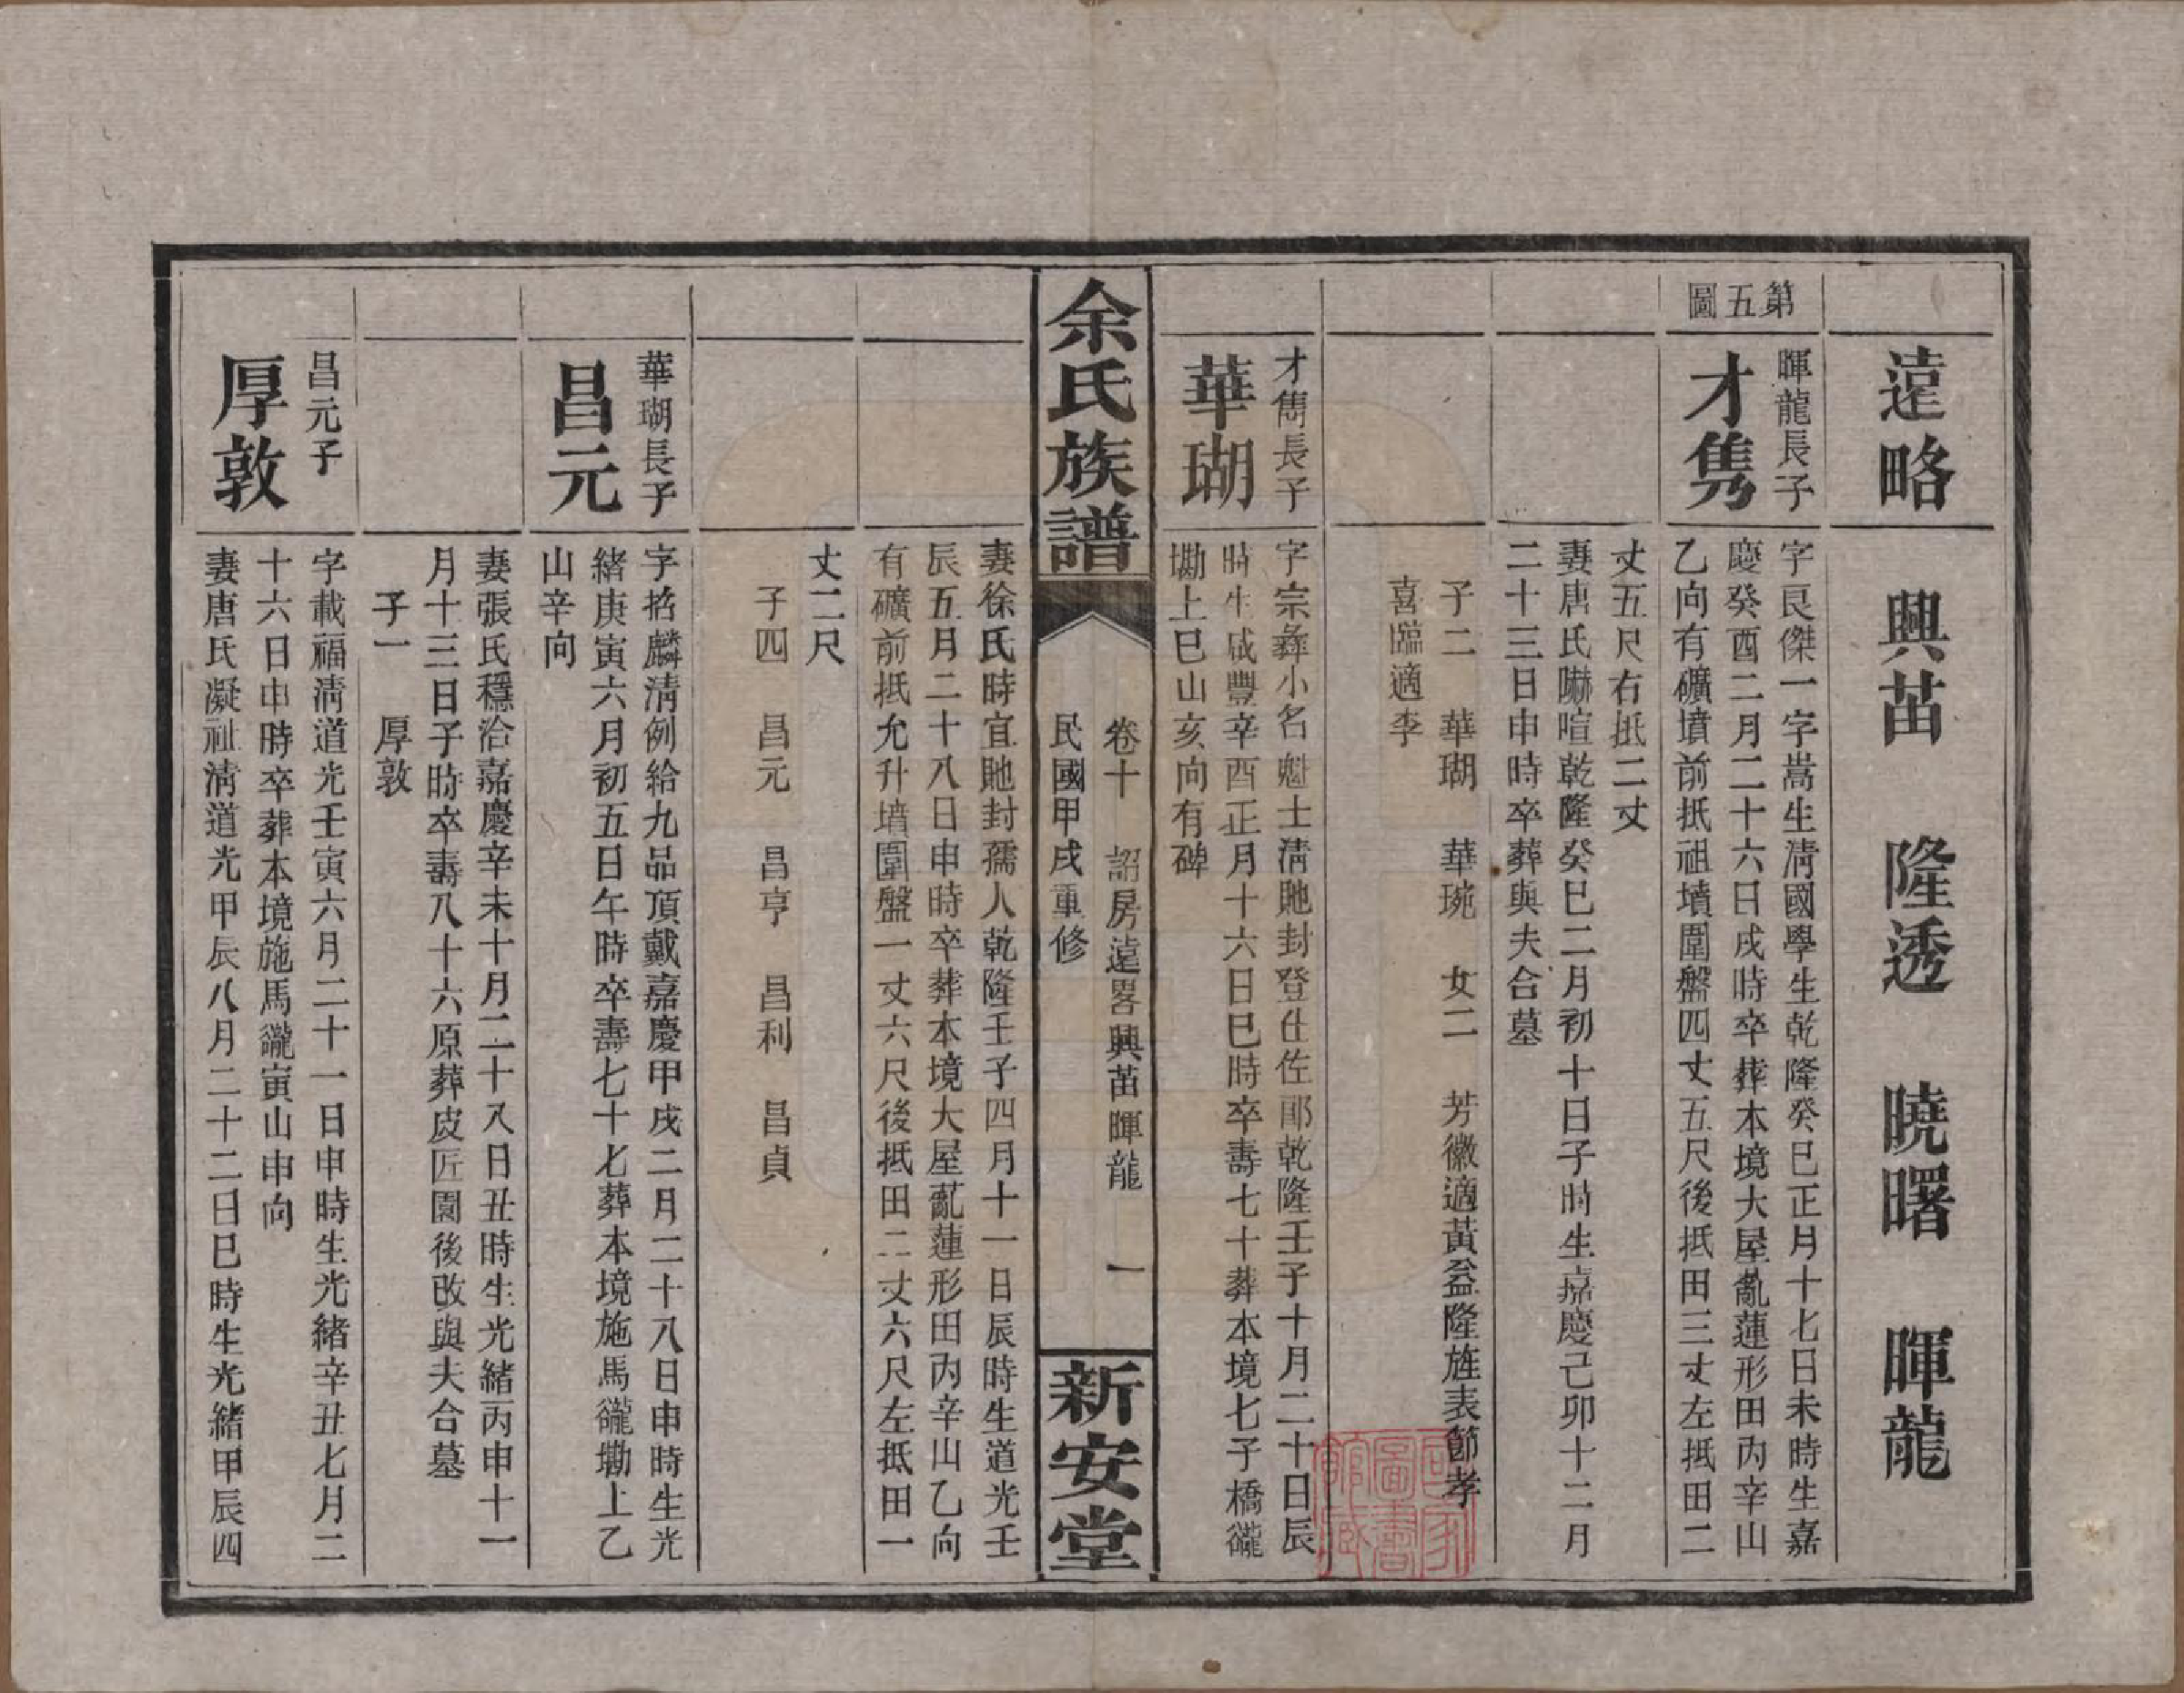 遠略　興苗　隆透　曉曙　暉龍
第五圖
暉龍長子
才雋
字良傑一字嵩生淸國學生乾隆癸巳正月十七日未時生嘉
慶癸酉二月二十六日戌時卒葬本境大屋亂蓮形田丙辛山
乙向有礦墳前抵祖墳圍盤四丈五尺後抵田三丈左抵田二
丈五尺右抵二丈
妻唐氏嚇暄乾隆癸巳二月初十日子時生嘉慶己卯十二月
二十三日申時卒葬與夫合墓
子二　華瑚　華琬　女二　芳徽適黃益隆旌表節孝
喜臨適李
才雋長子
華瑚
字宗彝小名魁士淸貤封登仕佐郎乾隆壬子十月二十日辰
時生咸豐辛酉正月十六日巳時卒壽七十葬本境七子橋䶬
墈上巳山亥向有碑
余氏族譜
卷十　詔房遠畧興苗暉龍　一
民國甲戌重修
新安堂
妻徐氏時宜貤封孺人乾隆壬子四月十一日辰時生道光壬
辰五月二十八日申時卒葬本境大屋亂蓮形田丙辛山乙向
有礦前抵允升墳圍盤一丈六尺後抵田二丈六尺左抵田一
丈二尺
子四　昌元　昌亨　昌利　昌貞
華瑚長子
昌元
字拾麟淸例給九品頂戴嘉慶甲戌二月二十八日申時生光
緒庚寅六月初五日午時卒壽七十七葬本境施馬䶬墈上乙
山辛向
妻張氏穩洽嘉慶辛未十月二十八日丑時生光緒丙申十一
月十三日子時卒壽八十六原葬皮匠園後改與夫合墓
子一　厚敦
昌元子
厚敦
字載福淸道光壬寅六月二十一日申時生光緒辛丑七月二
十六日申時卒葬本境施馬䶬寅山申向
妻唐氏凝祉淸道光甲辰八月二十二日巳時生光緒甲辰四